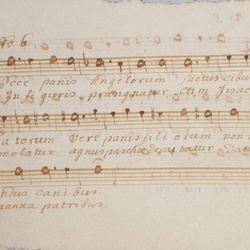 No 6.
Ecce panis Angelorum factus cibus
In figuris præsignatur Cum Isaac
atorum Vere panis filiorum non
molatur agnus paschæ deputatur Dat
ndus canibus
manna patribus